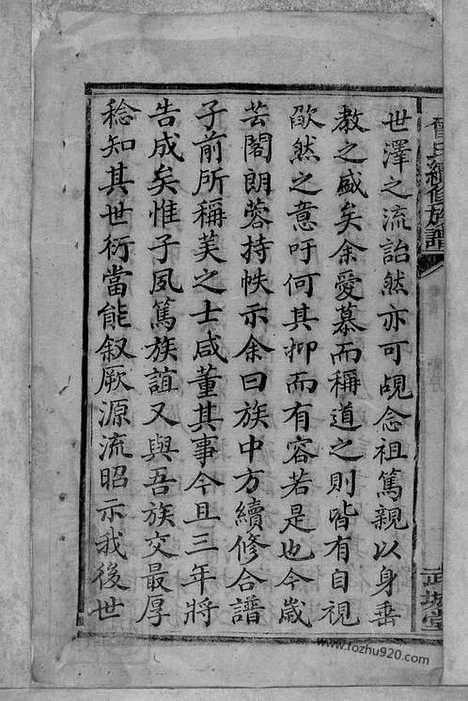 曾氏續修族譜
武城堂
世澤之流詒然亦可覘念祖篤親以身垂
教之盛矣余愛慕而稱道之則皆有自視
欿然之意吁何其抑而有容若是也今歲
芸閣朗蓉持帙示余曰族中方續修合譜
子前所稱芙之士咸董其事今且三年將
告成矣惟子夙篤族誼又與吾族交最厚
稔知其世衍當能叙厥源流昭示我後世
www.fozhu920.com